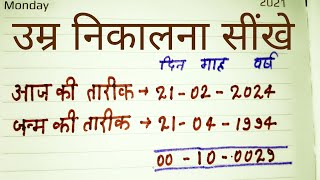 Monday 2021
उम्र निकालना सींखे
दिन माह वर्ष
आज की तारीक → 21-02-2024
जन्म की तारीक → 21-04-1994
00-10-0029